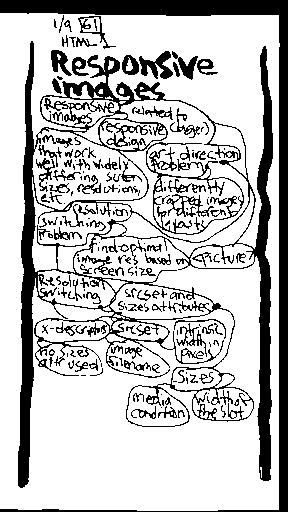 1/9 G1
HTML 1
Responsive
images
Responsive
images
related to
responsive
design
(larger)
images
that work
well with widely
differing screen
sizes, resolutions,
etc
art direction
problem
differently
cropped images
for different
layouts
resolution
switching
problem
find optimal
image res based on
screen size
<picture>
Resolution
switching
srcset and
sizes attributes
x-descriptors
srcset
intrinsic
width in
pixels
no sizes
attr used
image
filename
sizes
media
condition
width of
the slot